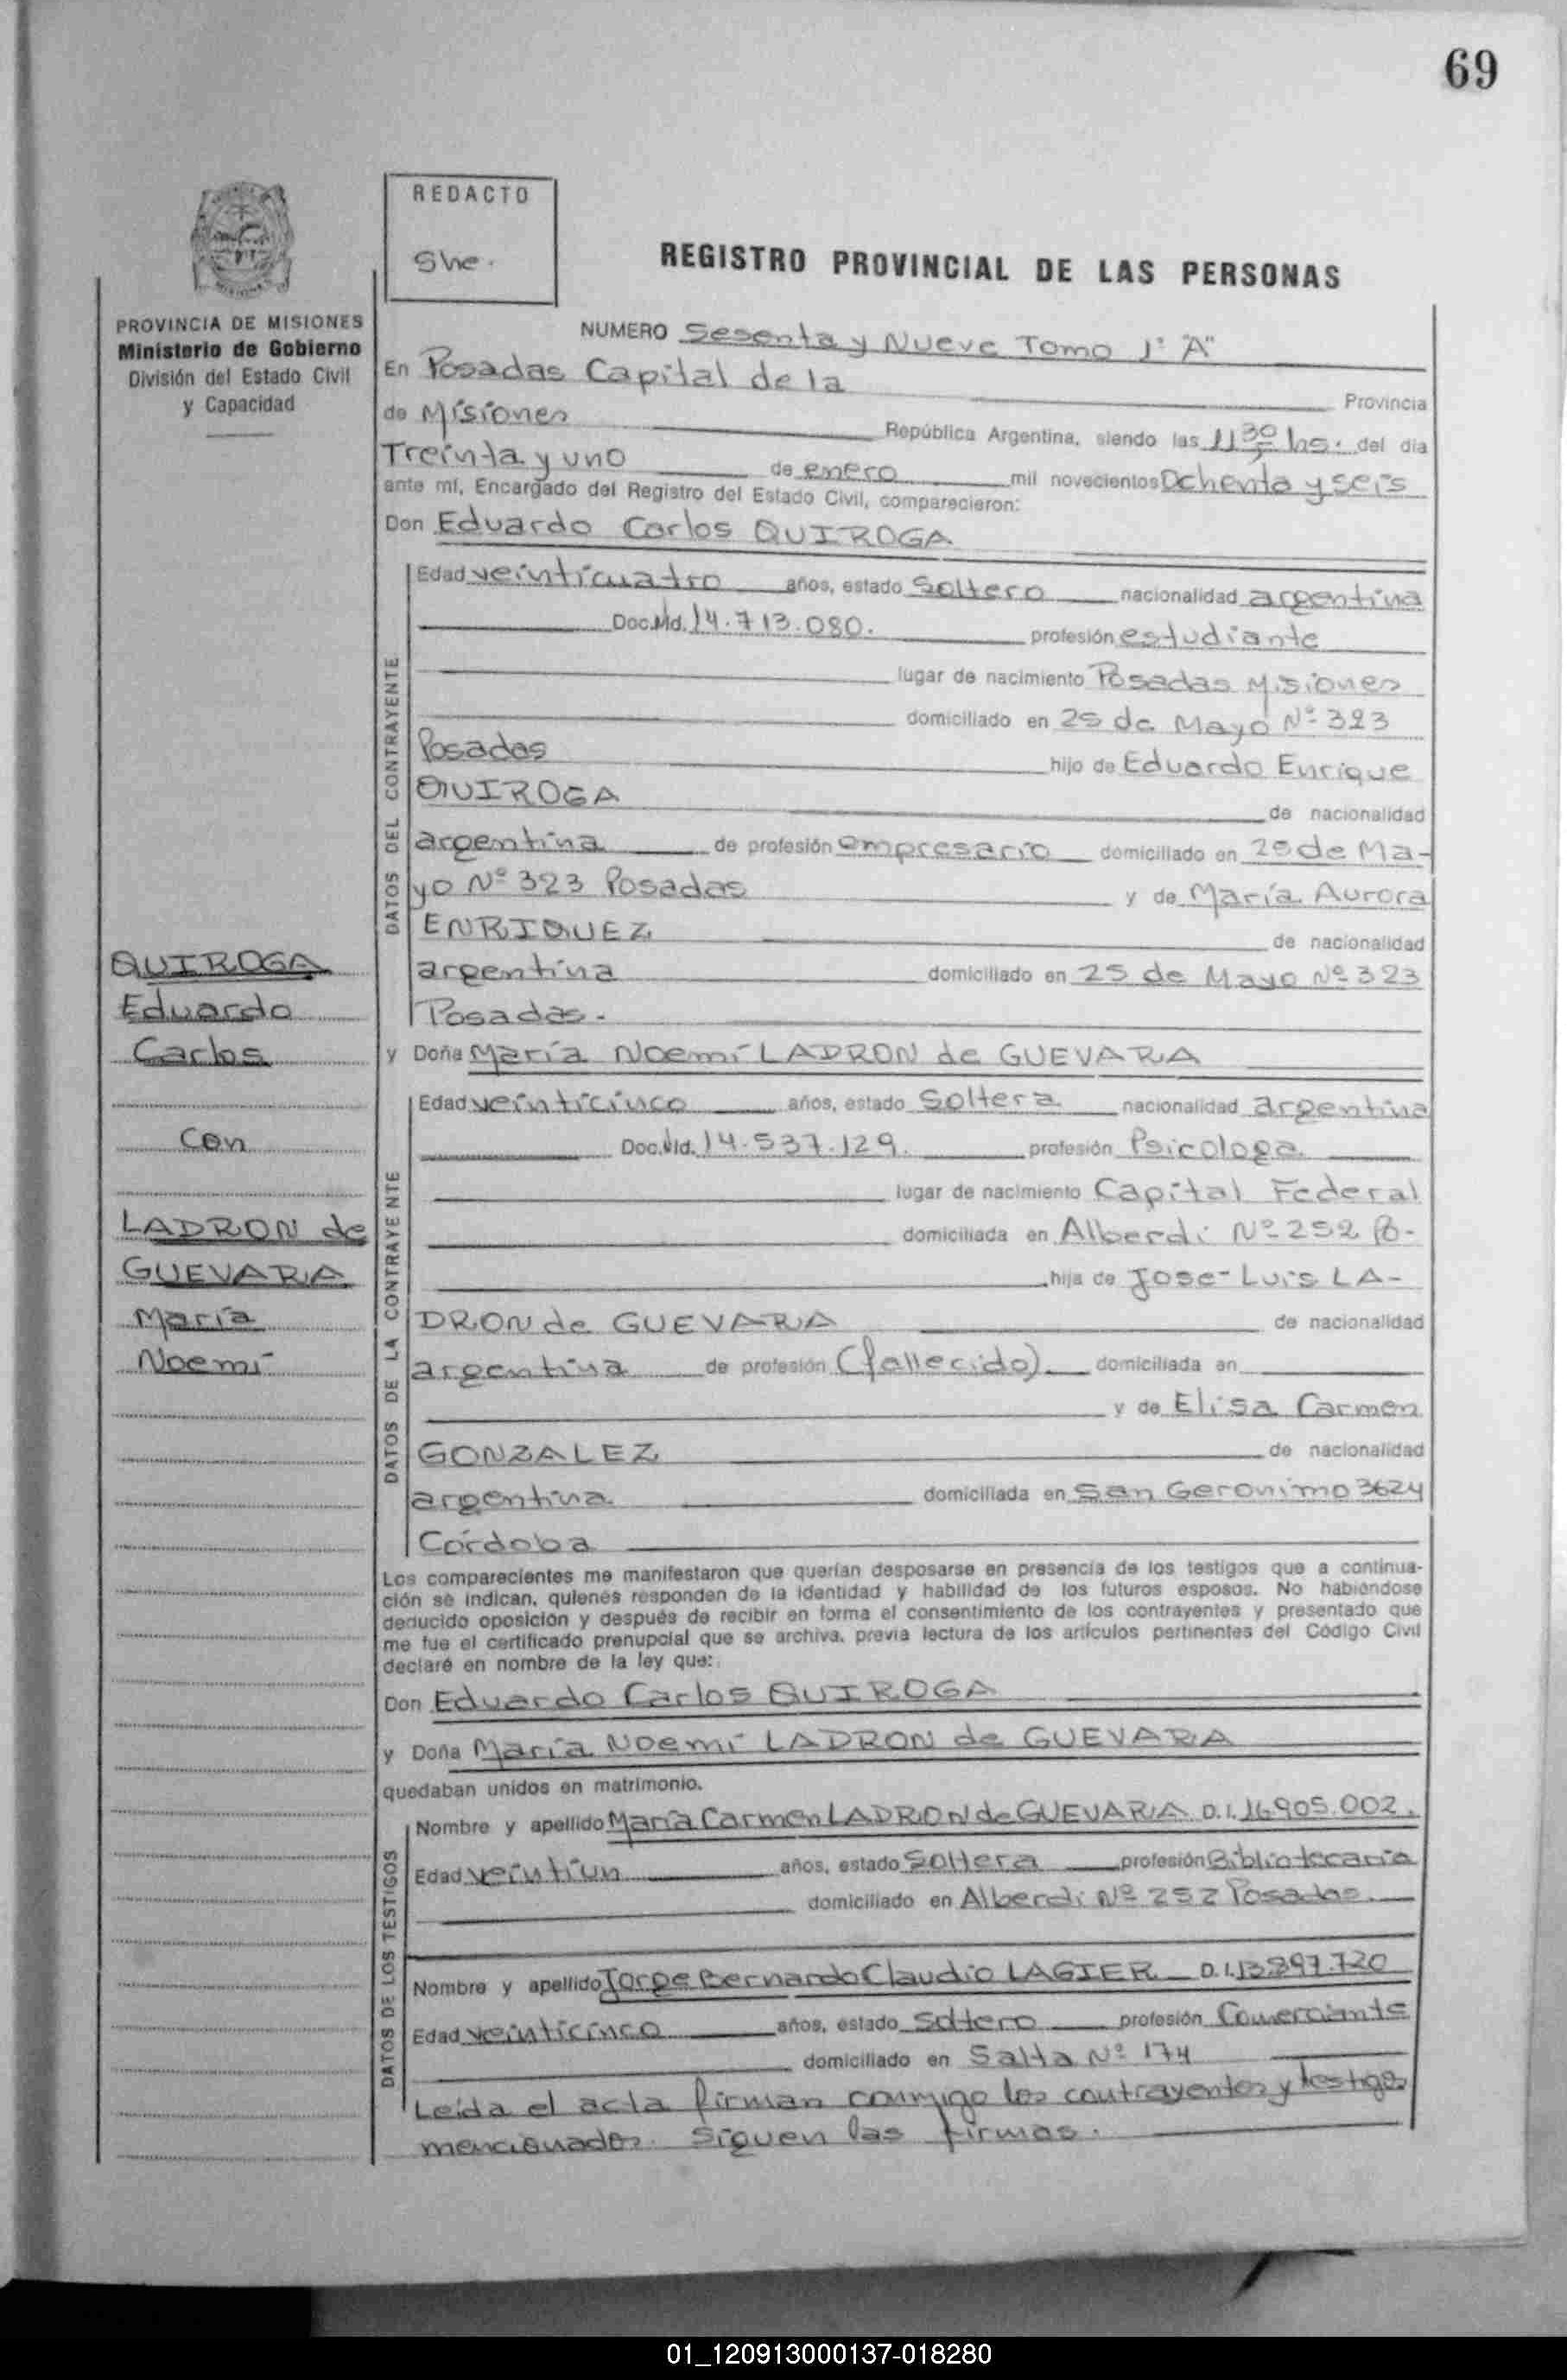 69
REDACTO
She.
REGISTRO PROVINCIAL DE LAS PERSONAS
PROVINCIA DE MISIONES
Ministerio de Gobierno
División del Estado Civil
y Capacidad
NUMERO Sesenta y Nueve Tomo 1º "A"
En Posadas Capital de la Provincia
de Misiones República Argentina, siendo las 11 30 hs. del día
Treinta y uno de enero mil novecientos Ochenta y seis
ante mí, Encargado del Registro del Estado Civil, comparecieron:
Don Eduardo Carlos QUIROGA
DATOS DEL CONTRAYENTE
Edad veinticuatro años, estado Soltero nacionalidad argentina
Doc. Nd. 14.713.080. profesión estudiante
lugar de nacimiento Posadas Misiones
domiciliado en 25 de Mayo Nº 323
Posadas hijo de Eduardo Enrique
QUIROGA de nacionalidad
argentina de profesión empresario domiciliado en 25 de Ma-
yo Nº 323 Posadas y de María Aurora
ENRIQUEZ de nacionalidad
argentina domiciliado en 25 de Mayo Nº 323
Posadas.
QUIROGA
Eduardo
Carlos
con
LADRON de
GUEVARA
María
Noemí
y Doña María Noemí LADRON de GUEVARA
DATOS DE LA CONTRAYENTE
Edad veinticinco años, estado Soltera nacionalidad argentina
Doc. Nd. 14.537.129. profesión Psicologa
lugar de nacimiento Capital Federal
domiciliada en Alberdi Nº 252 Po-
hija de Jose Luis LA-
DRON de GUEVARA de nacionalidad
argentina de profesión (fallecido) domiciliada en
y de Elisa Carmen
GONZALEZ de nacionalidad
argentina domiciliada en San Geronimo 3624
Córdoba
Los comparecientes me manifestaron que querían desposarse en presencia de los testigos que a continua-
ción se indican, quienes responden de la identidad y habilidad de los futuros esposos. No habiéndose
deducido oposición y después de recibir en forma el consentimiento de los contrayentes y presentado que
me fue el certificado prenupcial que se archiva, previa lectura de los artículos pertinentes del Código Civil
declaré en nombre de la ley que:
Don Eduardo Carlos QUIROGA
y Doña María Noemí LADRON de GUEVARA
quedaban unidos en matrimonio.
DATOS DE LOS TESTIGOS
Nombre y apellido María Carmen LADRON de GUEVARA D.I. 16.905.002.
Edad veintiun años, estado Soltera profesión Bibliotecaria
domiciliado en Alberdi Nº 252 Posadas.
Nombre y apellido Jorge Bernardo Claudio LAGIER D.I. 13.897.720
Edad veinticinco años, estado Soltero profesión Comerciante
domiciliado en Salta Nº 174
Leída el acta firman conmigo los contrayentes y testigos
mencionados. Siguen las firmas.
01_120913000137-018280